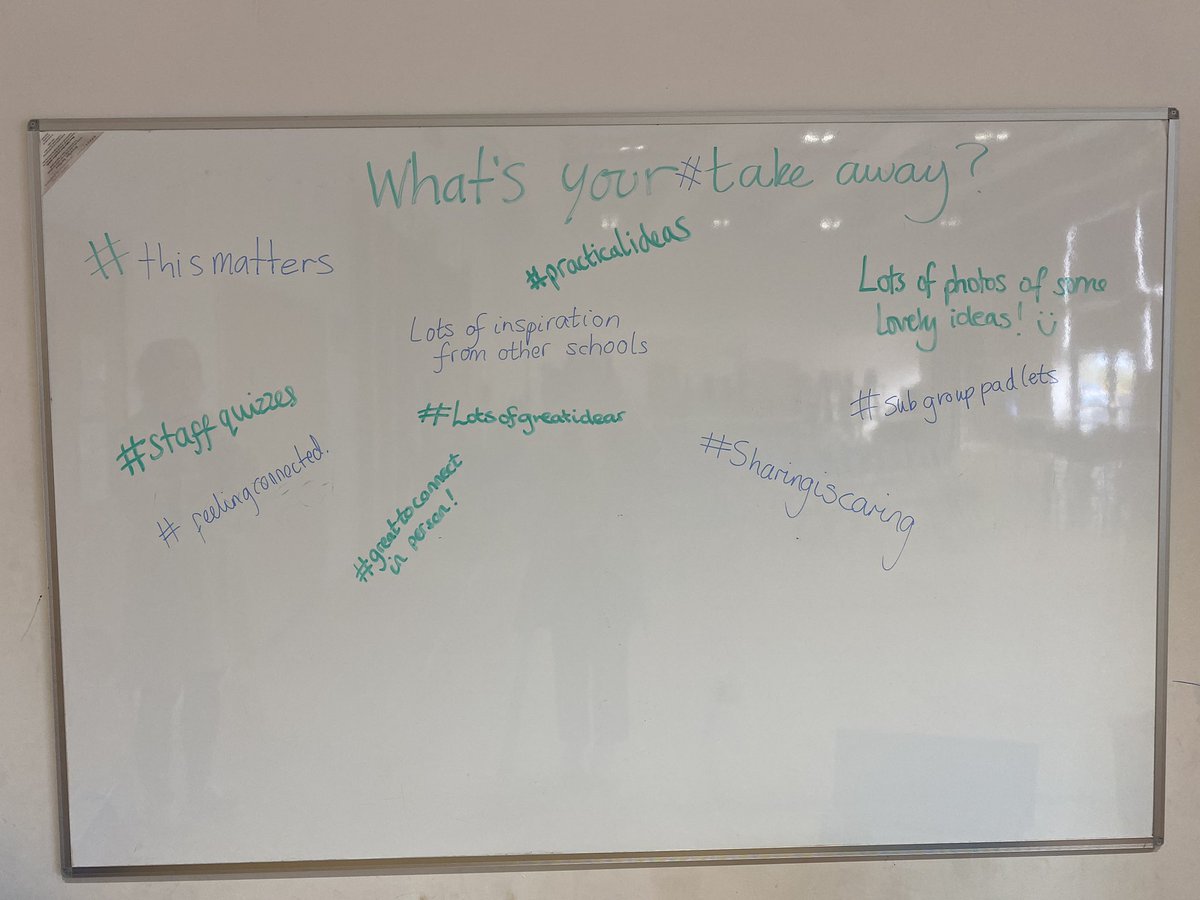 What's your #take away?
#thismatters
#practicalideas
Lots of photos of some
lovely ideas! :)
Lots of inspiration
from other schools
#subgrouppadlets
#staffquizzes
#Lotsofgreatideas
#Sharingiscaring
#feelingconnected.
#greattoconnect
in person!